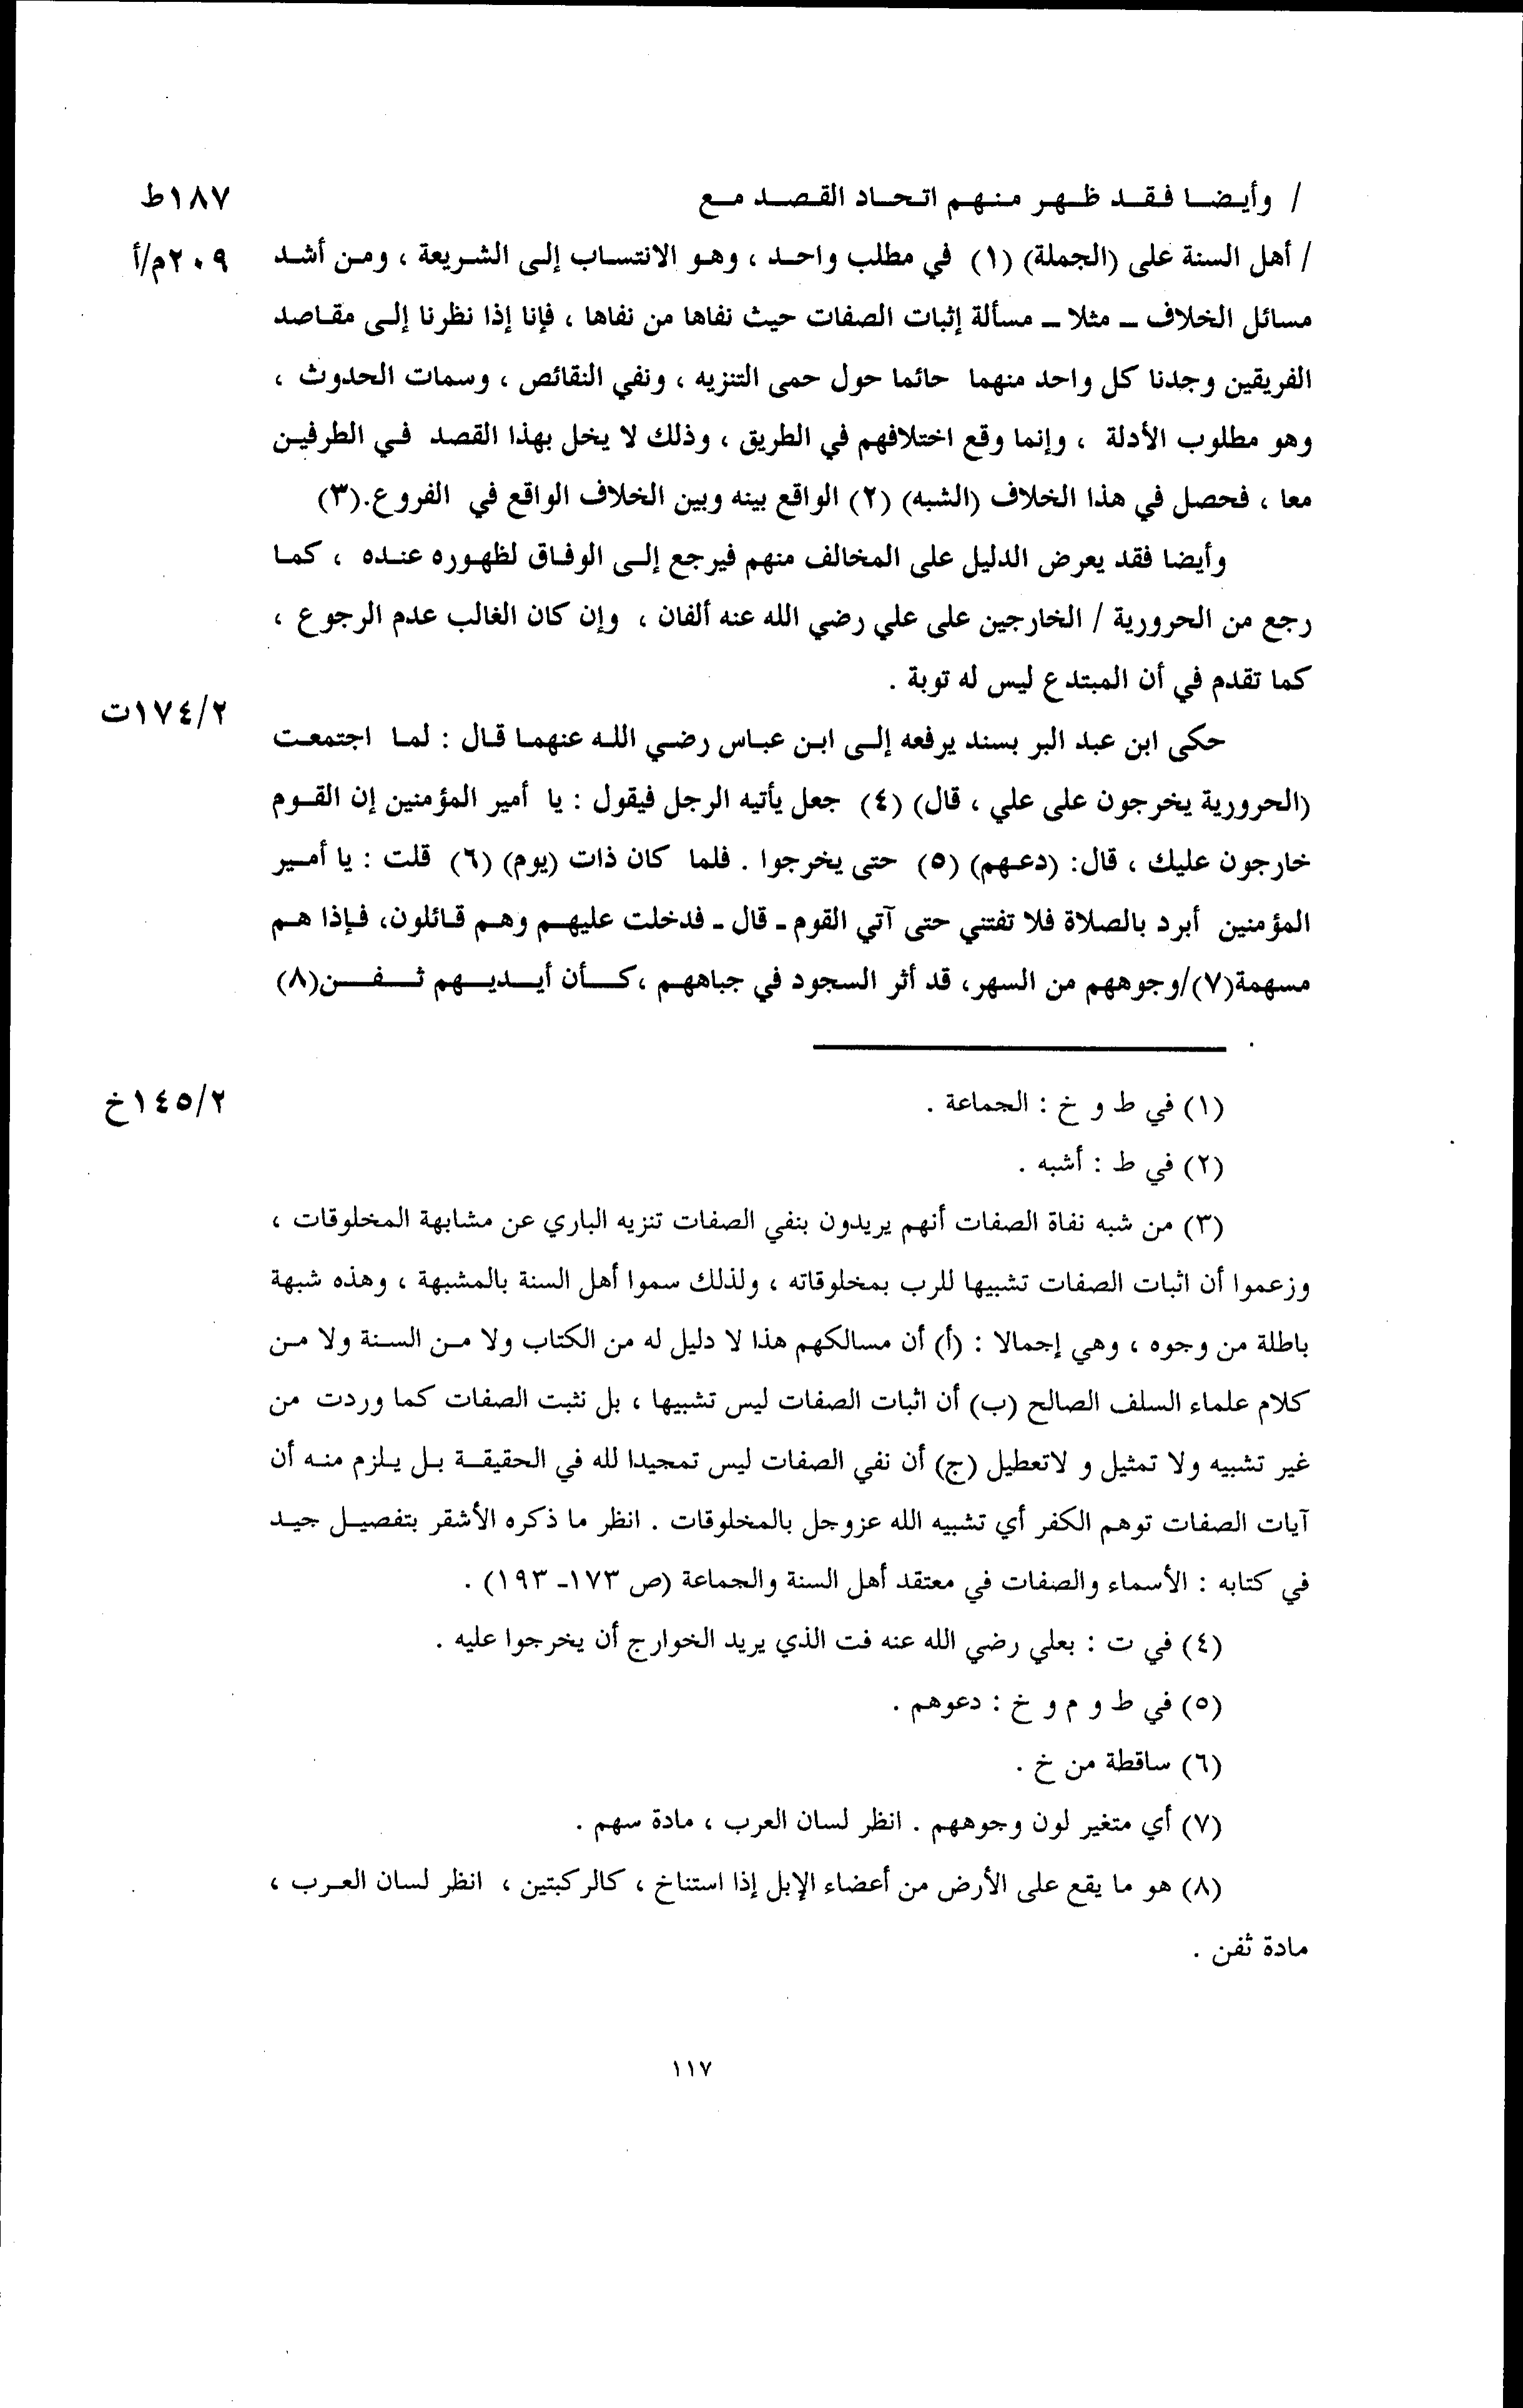 / وأيضا فقد ظهر منهم اتحاد القصد مع
١٨٧ط
/ أهل السنة على (الجملة) (١) في مطلب واحد ، وهو الانتساب إلى الشريعة ، ومن أشد
٢٠٩م/أ
مسائل الخلاف – مثلا – مسألة إثبات الصفات حيث نفاها من نفاها ، فإنا إذا نظرنا إلى مقاصد
الفريقين وجدنا كل واحد منهما حائما حول حمى التنزيه ، ونفي النقائص ، وسمات الحدوث ،
وهو مطلوب الأدلة ، وإنما وقع اختلافهم في الطريق ، وذلك لا يخل بهذا القصد في الطرفين
معا ، فحصل في هذا الخلاف (الشبه) (٢) الواقع بينه وبين الخلاف الواقع في الفروع.(٣)
وأيضا فقد يعرض الدليل على المخالف منهم فيرجع إلى الوفاق لظهوره عنده ، كما
رجع من الحرورية / الخارجين على علي رضي الله عنه ألفان ، وإن كان الغالب عدم الرجوع ،
كما تقدم في أن المبتدع ليس له توبة .
٢/١٧٤ت
حكى ابن عبد البر بسند يرفعه إلى ابن عباس رضي الله عنهما قال : لما اجتمعت
(الحرورية يخرجون على علي ، قال) (٤) جعل يأتيه الرجل فيقول : يا أمير المؤمنين إن القوم
خارجون عليك ، قال: (دعهم) (٥) حتى يخرجوا . فلما كان ذات (يوم) (٦) قلت : يا أمير
المؤمنين أبرد بالصلاة فلا تفتني حتى آتي القوم - قال - فدخلت عليهم وهم قائلون، فإذا هم
مسهمة(٧)/وجوههم من السهر، قد أثر السجود في جباههم ،كأن أيديهم ثفن(٨)
٢/١٤٥خ
(١) في ط و خ : الجماعة .
(٢) في ط : أشبه .
(٣) من شبه نفاة الصفات أنهم يريدون بنفي الصفات تنزيه الباري عن مشابهة المخلوقات ،
وزعموا أن اثبات الصفات تشبيها للرب بمخلوقاته ، ولذلك سموا أهل السنة بالمشبهة ، وهذه شبهة
باطلة من وجوه ، وهي إجمالا : (أ) أن مسالكهم هذا لا دليل له من الكتاب ولا من السنة ولا من
كلام علماء السلف الصالح (ب) أن اثبات الصفات ليس تشبيها ، بل نثبت الصفات كما وردت من
غير تشبيه ولا تمثيل و لاتعطيل (ج) أن نفي الصفات ليس تمجيدا لله في الحقيقة بل يلزم منه أن
آيات الصفات توهم الكفر أي تشبيه الله عزوجل بالمخلوقات . انظر ما ذكره الأشقر بتفصيل جيد
في كتابه : الأسماء والصفات في معتقد أهل السنة والجماعة (ص ١٧٣- ١٩٣) .
(٤) في ت : بعلي رضي الله عنه فت الذي يريد الخوارج أن يخرجوا عليه .
(٥) في ط و م و خ : دعوهم .
(٦) ساقطة من خ .
(٧) أي متغير لون وجوههم . انظر لسان العرب ، مادة سهم .
(٨) هو ما يقع على الأرض من أعضاء الإبل إذا استناخ ، كالركبتين ، انظر لسان العرب ،
مادة ثفن .
١١٧